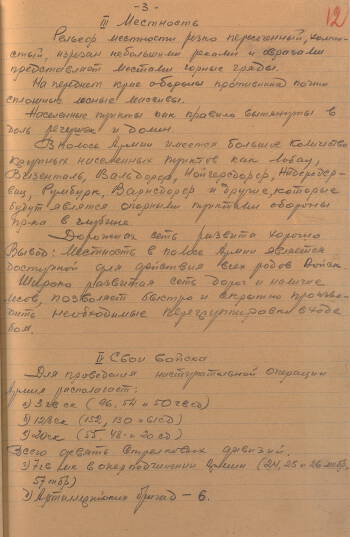 -3-
12
III Местность
Рельеф местности резко пересеченный, холми-
стый, изрезан небольшими реками и оврагами
представляют местами горные гряды.
На переднем крае обороны противника почти
сплошные лесные массивы.
Населенные пункты как правило вытянуты в
доль речушек и долин.
В полосе Армии имеется большое количество
крупных населенных пунктов как Лобау,
Вальдорф,
Румбург, Варнсдорф и другие, которые
будут являтся опорными пунктами обороны
пр-ка в глубине.
Дорожная сеть развита хорошо
Вывод: Местность в полосе Армии является
доступной для действия всех родов Войск.
Широко развитая сеть дорог и наличие
лесов, позволяет быстро и скрытно произво-
дить необходимые перегруппировки в ходе
боя.
II Свои войска
Для проведения наступательной операции
Армия располагает:
а) 3 гв ск (96, 54 и 50 гв сд)
б) 128 ск (152, 130 и 61 сд)
в) 20 ск (55, 48 и 20 сд)
Всего девять стрелковых дивизий.
г) 7 гв мк в оперподчинении Армии (24, 25 и 26 мбр,
57 тбр)
д) Артиллерийских бригад - 6.